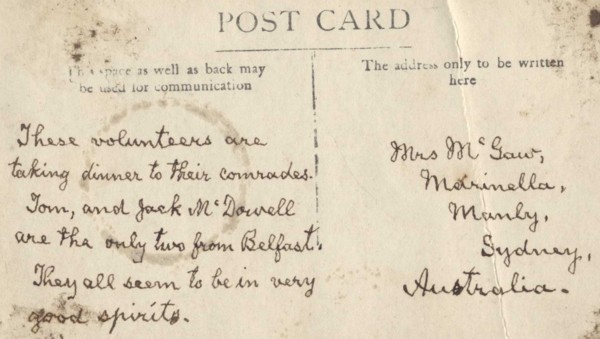 POST CARD
This space as well as back may
be used for communication
The address only to be written
here
These volunteers are
taking dinner to their comrades.
Tom, and Jack McDowell
are the only two from Belfast.
They all seem to be in very
good spirits.
Mrs McGaw,
Marinella,
Manly,
Sydney,
Australia.